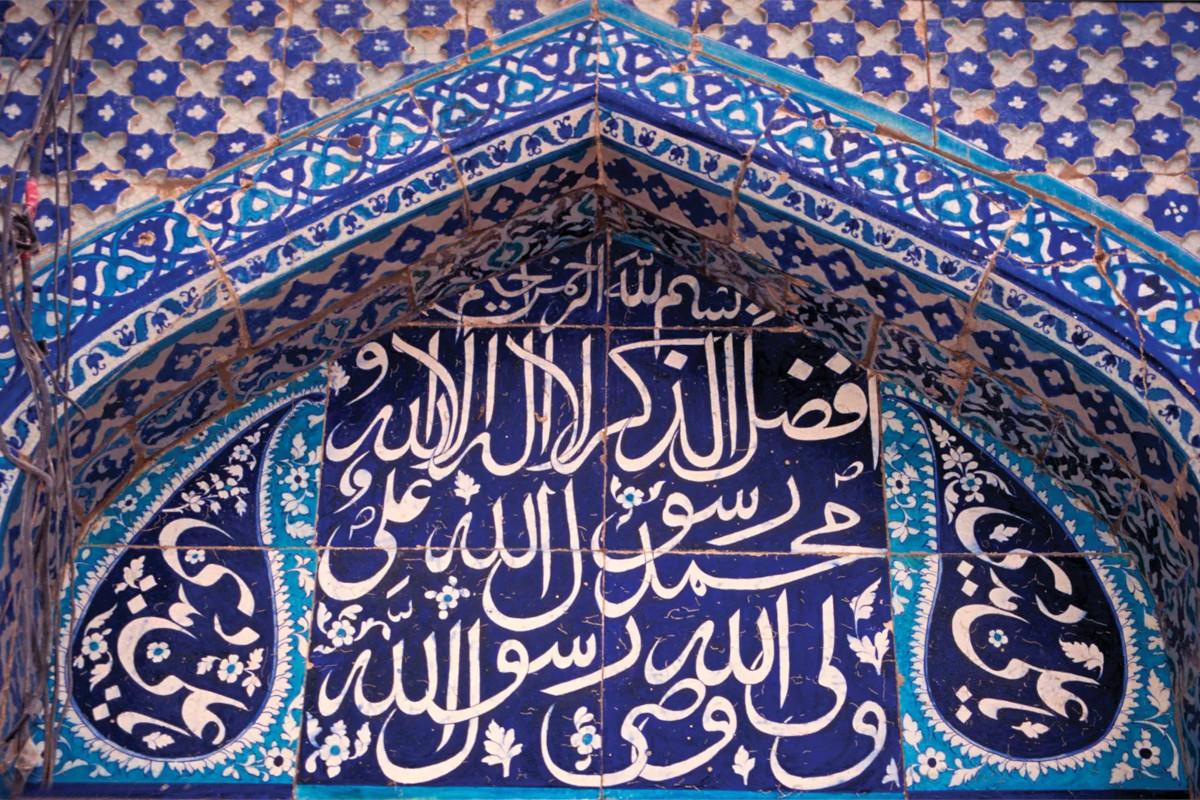 بسم الله الرحمن الرحیم
افضل الذکر لا اله الا الله و
محمد رسول الله و علی
ولی الله وصی رسول الله